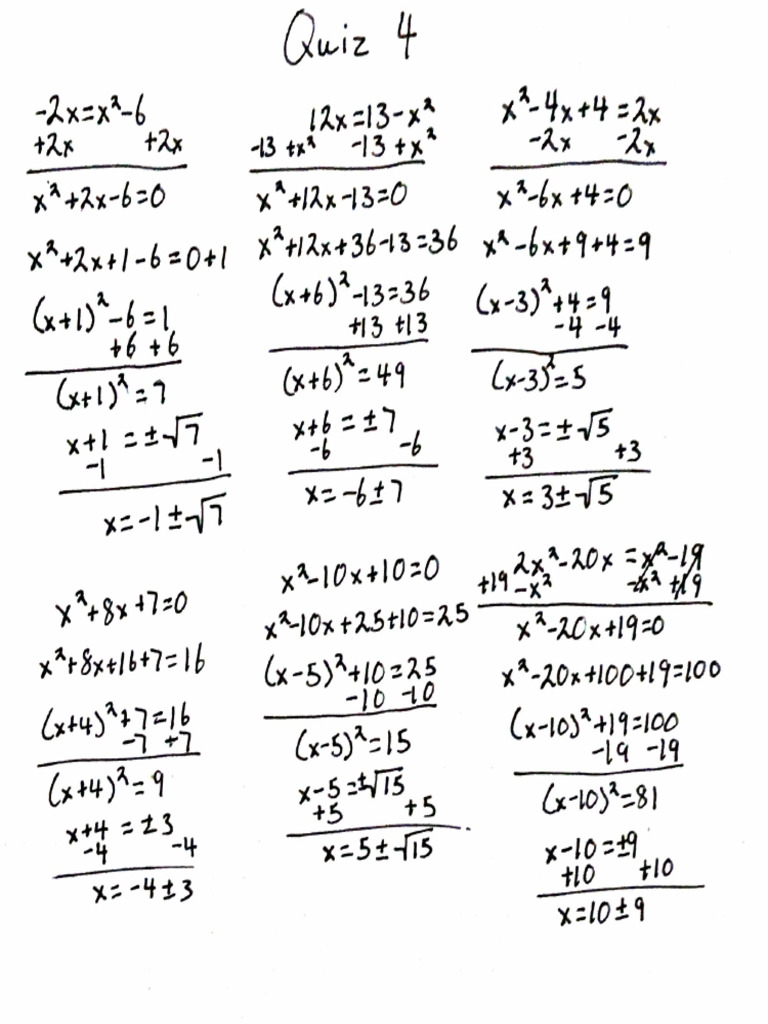 Quiz 4
-2x=x²-6
+2x +2x
x²+2x-6=0
x²+2x+1-6=0+1
(x+1)²-6=1
+6 +6
(x+1)²=7
x+1=±√7
-1 -1
x=-1±√7
12x=13-x²
-13 +x² -13+x²
x²+12x-13=0
x²+12x+36-13=36
(x+6)²-13=36
+13 +13
(x+6)²=49
x+6=±7
-6 -6
x=-6±7
x²-4x+4=2x
-2x -2x
x²-6x+4=0
x²-6x+9+4=9
(x-3)²+4=9
-4 -4
(x-3)²=5
x-3=±√5
+3 +3
x=3±√5
x²+8x+7=0
x²+8x+16+7=16
(x+4)²+7=16
-7 +7
(x+4)²=9
x+4=±3
-4 -4
x=-4±3
x²-10x+10=0
x²-10x+25+10=25
(x-5)²+10=25
-10 -10
(x-5)²=15
x-5=±√15
+5 +5
x=5±√15
2x²-20x=x²-19
+19 -x² -x² +19
x²-20x+19=0
x²-20x+100+19=100
(x-10)²+19=100
-19 -19
(x-10)²=81
x-10=±9
+10 +10
x=10±9